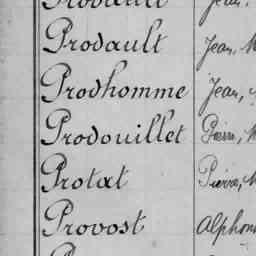 Prodault Jean, M
Prodhomme Jean,
Prodouillet Pierre, M
Protat Pierre, M
Provost Alphon